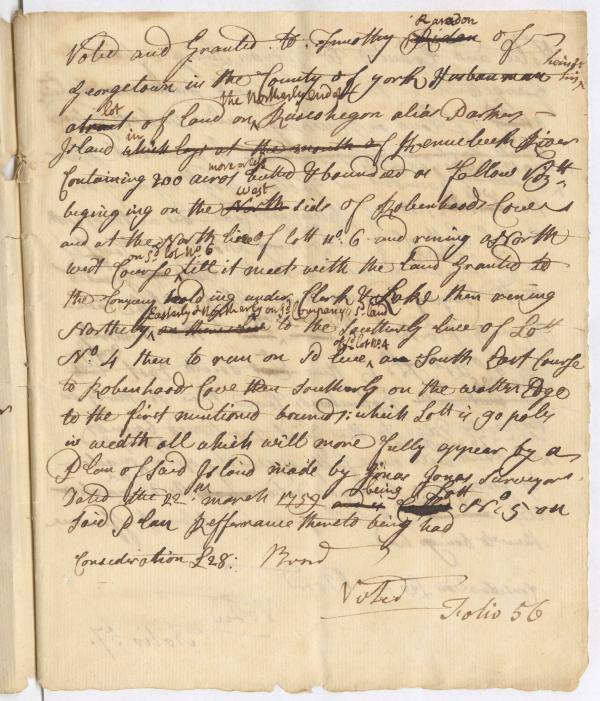 Voted and Granted to Timothy Ridan Raredon of
Georgetown in the County of york Husbanman heirs &
a tract lot of land on the Northerly end of Ruscohegon alias Parker
Island in which lays at the mouth of Kennebeck River
Containing 200 acres more or less butted & bounded as follow Vizt
begining on the North West side of Robenhoods Cove
and at the North line of lott no. 6 and runing a North
west Course on sd lot No. 6 till it meet with the land Granted to
the Company hold ing under Clark & Lake then runing
Northely Easterly & Northerly on sd Company,s sd land to the Southerly line of Lott
No. 4 then to run on sd line of sd lot No. 4 an South East Course
to Robenhoods Cove then Southerly on the watter Edge
to the first mentioned bounds: which Lott is 90 poles
in wedth all which will more fully appear by a
Plan of Said Island made by Jonas Jones Surveyor
Dated the 22d march 1759 and is being Lott No. 5 on
Said Plan Refferance thereto being had
Consideration £28: Bond
Voted
Folio 56